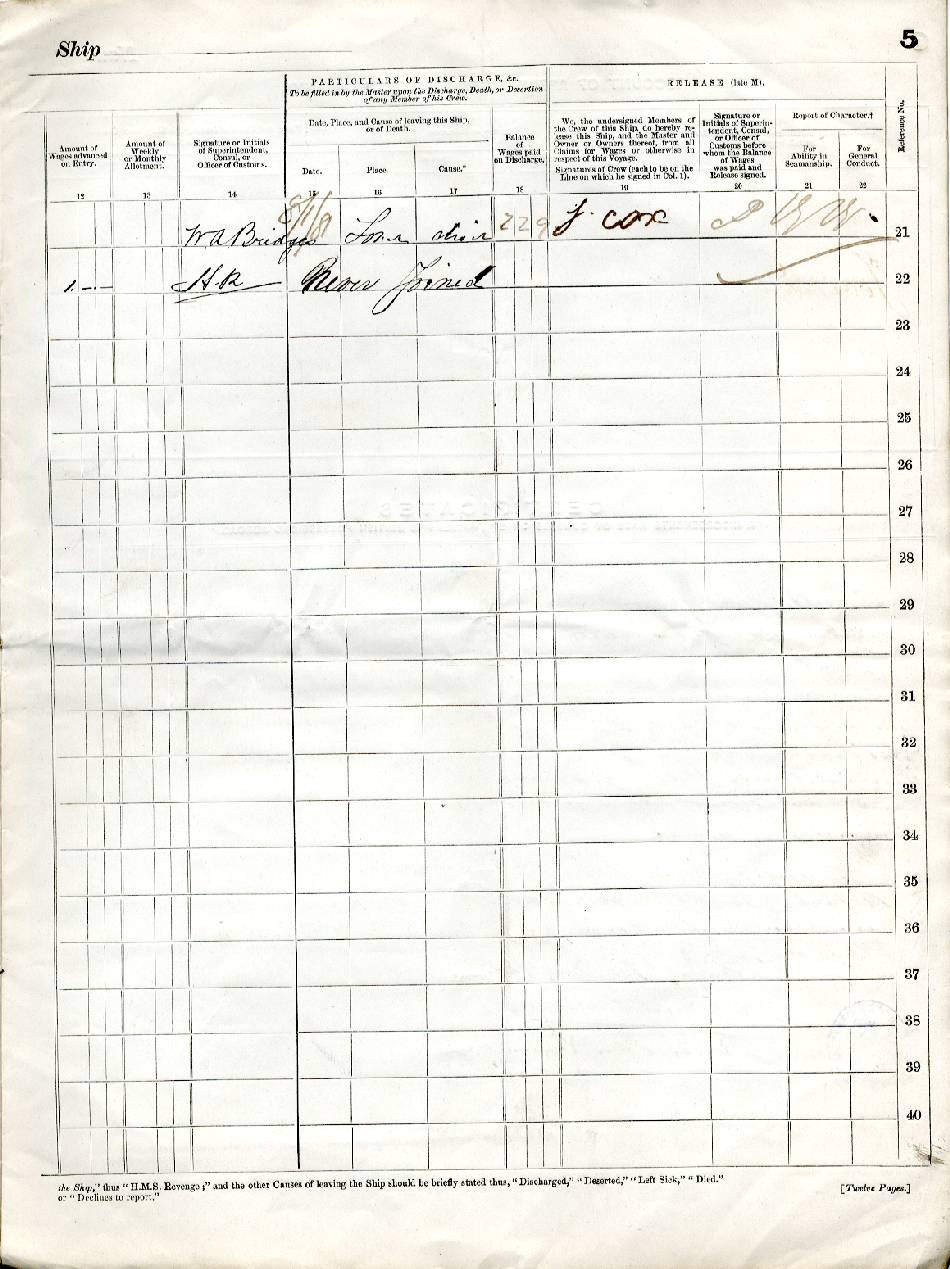 Ship
5
PARTICULARS OF DISCHARGE, &c.
To be filled in by the Master upon the Discharge, Death, or Desertion
of any Member of his Crew.
RELEASE (late M).
Reference No.
Amount of
Wages advanced
on Entry.
12
Amount of
Weekly
or Monthly
Allotment.
13
Signature or Initials
of Superintendent,
Consul, or
Officer of Customs.
14
Date, Place, and Cause of leaving this Ship,
or of Death.
Date.
15
Place.
16
Cause.*
17
Balance
of
Wages paid
on Discharge.
18
We, the undersigned Members of
the Crew of this Ship, do hereby re-
lease this Ship, and the Master and
Owner or Owners thereof, from all
Claims for Wages or otherwise in
respect of this Voyage.
Signatures of Crew (each to be on the
Line on which he signed in Col. 1).
19
Signature or
Initials of Superin-
tendent, Consul,
or Officer of
Customs before
whom the Balance
of Wages
was paid and
Release signed.
20
Report of Character.†
For
Ability in
Seamanship.
21
For
General
Conduct.
22
W A Bridges 2 2 9 J. Cox 21
1 - - H.R Never Joined 22
23
24
25
26
27
28
29
30
31
32
33
34
35
36
37
38
39
40
the Ship," thus "H.M.S. Revenge;" and the other Causes of leaving the Ship should be briefly stated thus, "Discharged," "Deserted," "Left Sick," "Died."
or "Declines to report."
[Twelve Pages.]